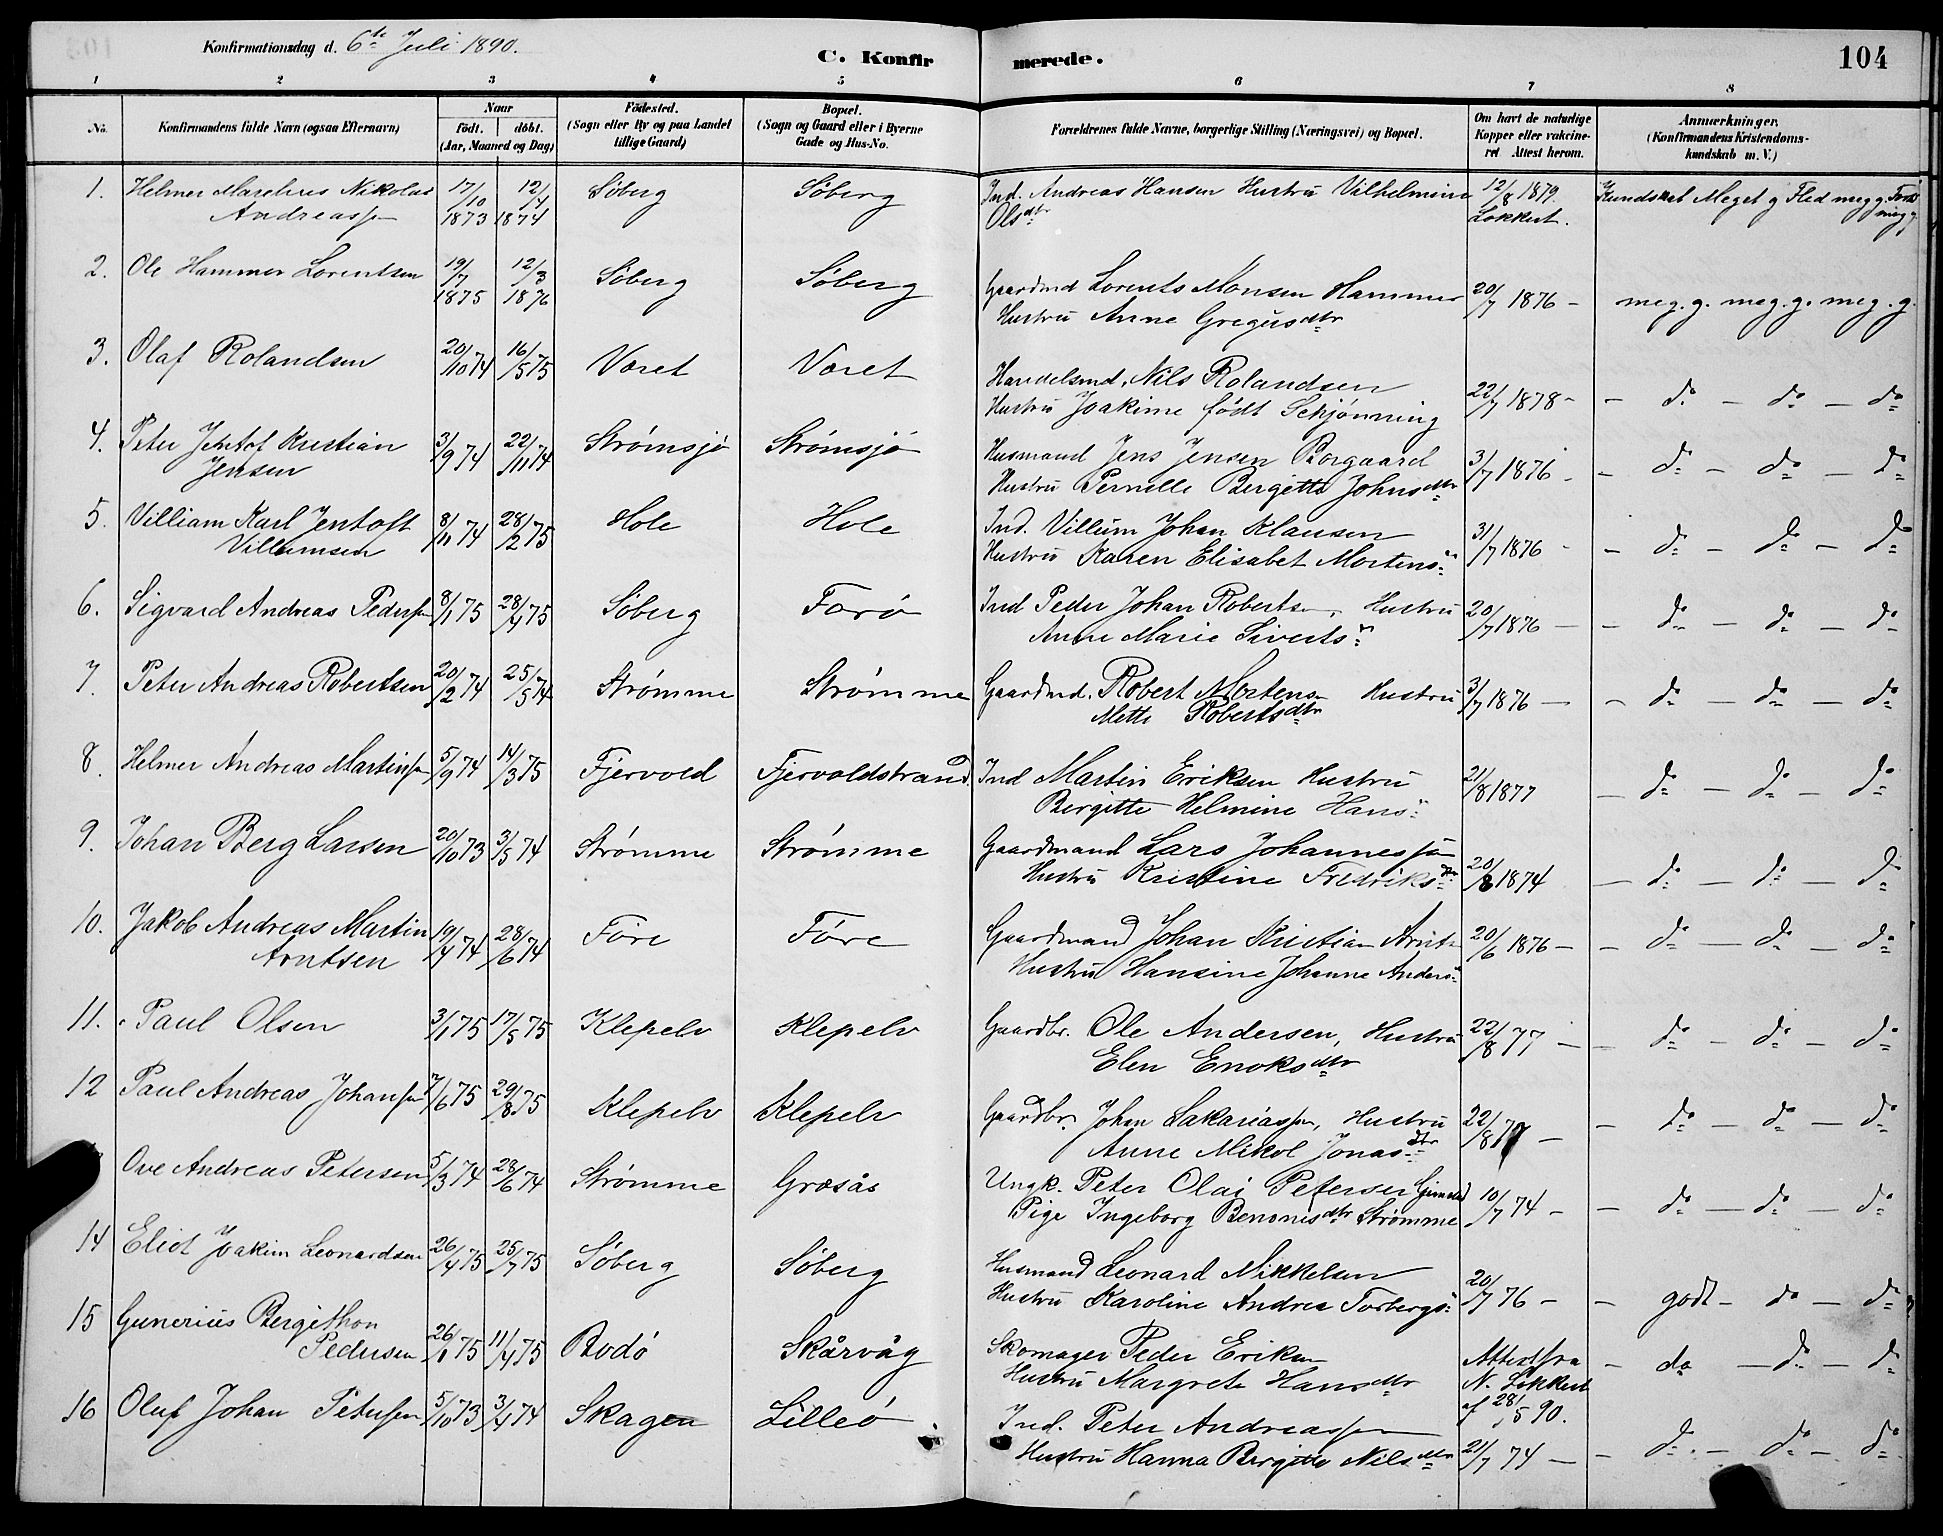 Konfirmationsdag d. 6te Juli 1890.
C. Konfirmerede.
104
1 2 3 4 5 6 7 8
No.
Konfirmandens fulde Navn (ogsaa Efternavn)
Naar
födt. döbt.
(Aar, Maaned og Dag)
Födested.
(Sogn eller By og paa Landet
tillige Gaard)
Bopæl.
(Sogn og Gaard eller i Byerne
Gade og Hus-No.
Forældrenes fulde Navne, borgerlige Stilling (Næringsvei) og Bopæl.
Om havt de naturlige
Kopper eller vakcine-
ret Attest herom.
Anmærkninger.
(Konfirmandens Kristendoms-
kundskab m. V.)
1. Helmer Marelius Nikolai 17/10 12/4 Söberg Söberg Ind. Andreas Hansen Hustru Vilhelmine 12/8 1879. Kundskab Meget g Flid meg g.
Andreassen 1873 1874 Olsdtr Lokkert. meg g
2. Ole Hammer Lorentsen 19/7 12/3 Söberg Söberg Gaardmd Lorents Monsen Hammer 20/7 1876 - meg. g. meg. g. meg. g.
1875 1876 Hustru Anne Gregusdtr
3. Olaf Rolandsen 20/10 74 16/5 75 Været Været Handelsmd. Nils Rolandsen 22/7 1878 - - do - do - do
Hustru Joakime født Schjønning
4. Peter Jentof Kristian 3/9 74 22/11 74 Strømsjö Strømsjö Husmand Jens Jensen Borgaard 3/7 1876 - - do - do - do
Jensen Hustru Pernelle Bergitte Johnsdtr
5. Villiam Karl Jentoft 8/11 74 28/2 75 Hole Hole Ind. Villum Johan Klausen 31/7 1876 - - do - do - do
Villumsen Hustru Karen Elisabet Mortens"
6. Sigvard Andreas Pedersen 8/1 75 28/4 75 Söberg Forö Ind Peder Johan Robertsen, Hustru 20/7 1876 - - do - do - do
Anne Marie Siverts"
7. Peter Andreas Robertsen 20/2 74 25/5 74 Strømme Strømme Gaardmd. Robert Mortensen Hustru 3/7 1876 - - do - do - do
Mette Robertsdtr
8. Helmer Andreas Martinsen 5/9 74 14/3 75 Fjervold Fjervoldstrand Ind Martin Eriksen Hustru 21/8 1877 - do - do - do
Bergitte Helmine Hans"
9. Johan Berg Larsen 20/10 73 3/5 74 Strømme Strømme Gaardmand Lars Johannessen 20/8 1874 - do - do - do
Hustru Kristine Fredriksdtr
10. Jakob Andreas Martin 19/4 74 28/6 74 Före Före Gaardmand Johan Kristian Arnts 20/6 1876 - - do - do - do
Arntsen Hustru Hansine Johanne Anders"
11. Paul Olsen 3/1 75 17/5 75 Klepelv Klepelv Gaardbr. Ole Andersen, Hustru 22/8 77 - - do - do - do
Elen Enoksdtr
12 Paul Andreas Johansen 7/6 75 29/8 75 Klepelv Klepelv Gaardbr. Johan Sakariassen, Hustru 22/8 77 - - do - do - do
Anne Mikol Jonasdtr
Ove Andreas Petersen 5/3 74 28/6 74 Strømme Græsås Ungk. Peter Olai Petersen 10/7 74 - - do - do - do
Pige Ingeborg Benonisdtr Strømme
14 Eliot Joakim Leonardsen 26/4 75 25/7 75 Söberg Söberg Husmand Leonard Mikkelsen 20/7 76 - - godt - do - do
Hustru Karoline Andrea Torbergs"
15 Gunerius Bergithon 26/1 75 11/4 75 Bodö Skårvåg Skomager Peder Eriksen Attest fra - do - do - do
Pedersen Hustru Margrete Hansdtr N. Lokkert
af 28/5 90.
16 Oluf Johan Petersen 5/10 73 3/4 74 Skagen Lilleö Ind. Peter Andreassen 21/7 74 - - do - do - do
Hustru Hanna Bergitte Nilsdtr